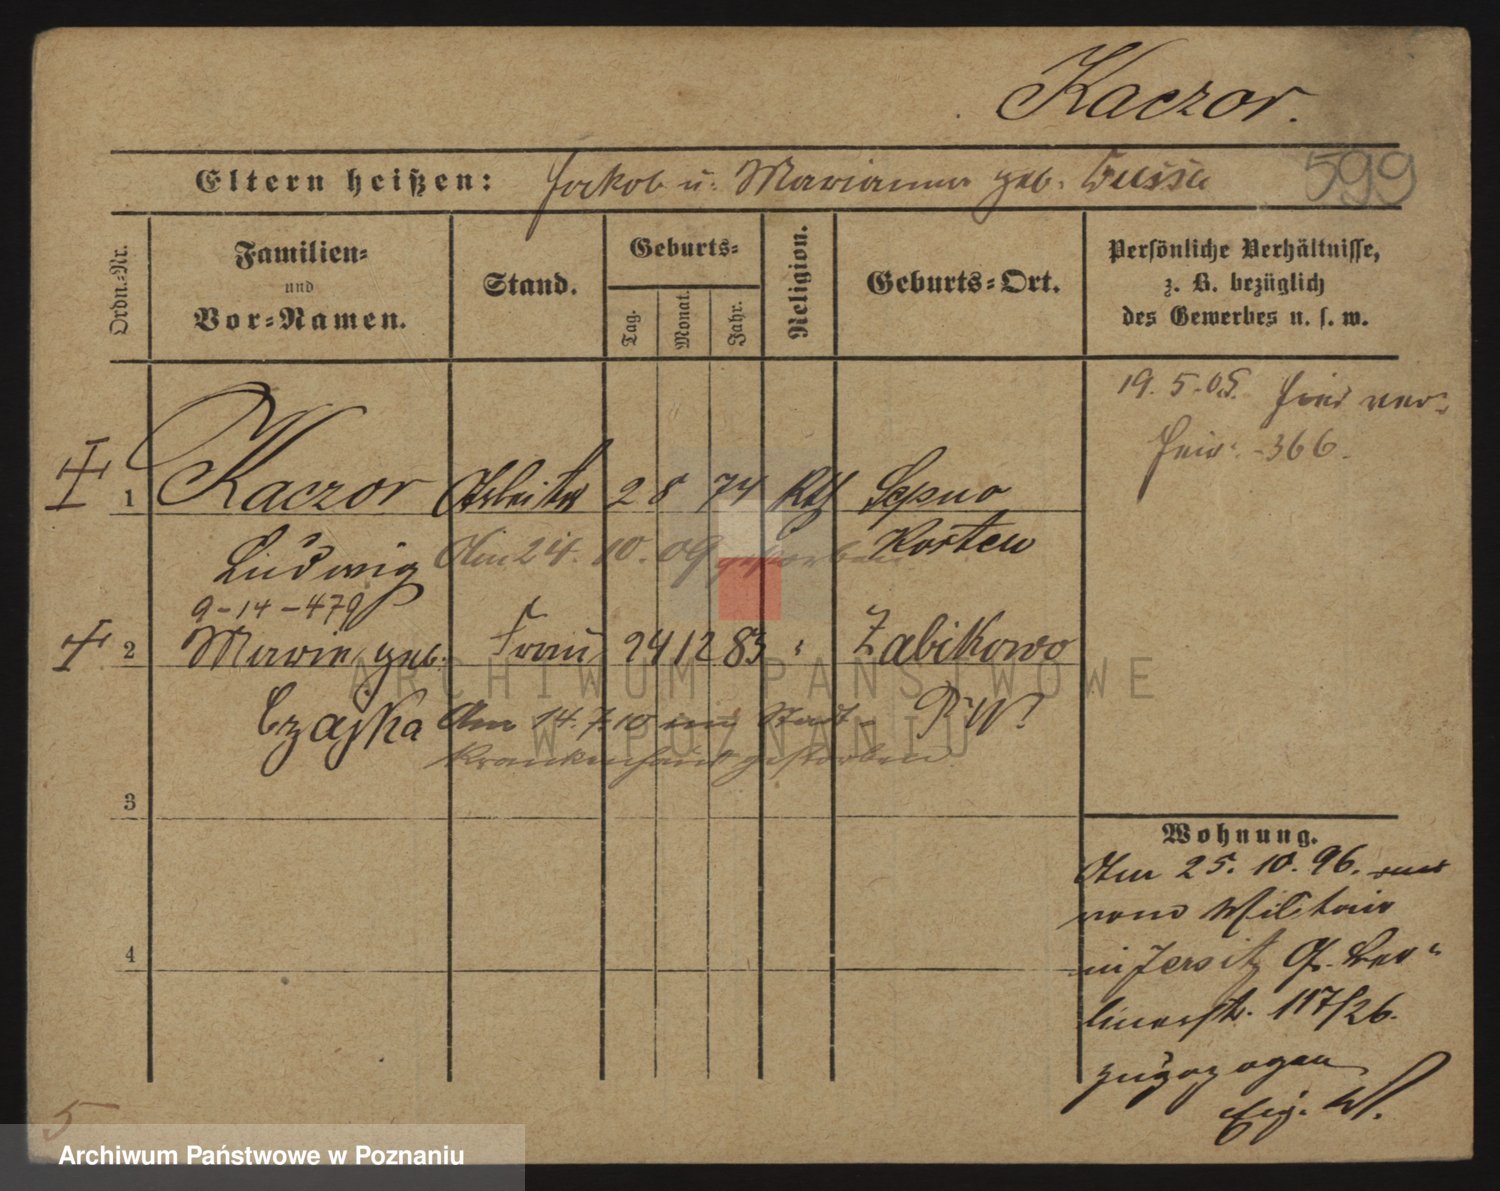 Kaczor.
Eltern heißen: Jakob u. Marianna geb.
599
Ordn.-Nr.
Familien-
und
Vor-Namen.
Stand.
Geburts-
Tag.
Monat.
Jahr.
Religion.
Geburts-Ort.
Persönliche Verhältnisse,
z. B. bezüglich
des Gewerbes u. s. w.
19. 5. 05. hier ver-
heir. -366.
1 Kaczor Arbeiter 2 8 74 Kth Sepno
Ludwig Am 24. 10. 09 gestorben Kosten
9-14-479
2 Marie geb. Frau 24 12 83 " Zabikowo
Czajka Am 14. 7. 10 im Stadt- P. W.
krankenhaus gestorben
3
4
Wohnung.
Am 25. 10. 96.
vom Militair
in Jersitz Gr. Ber-
linerstr. 117/26.
zugezogen
Eig. W.
5
ARCHIWUM PAŃSTWOWE
W POZNANIU
Archiwum Państwowe w Poznaniu